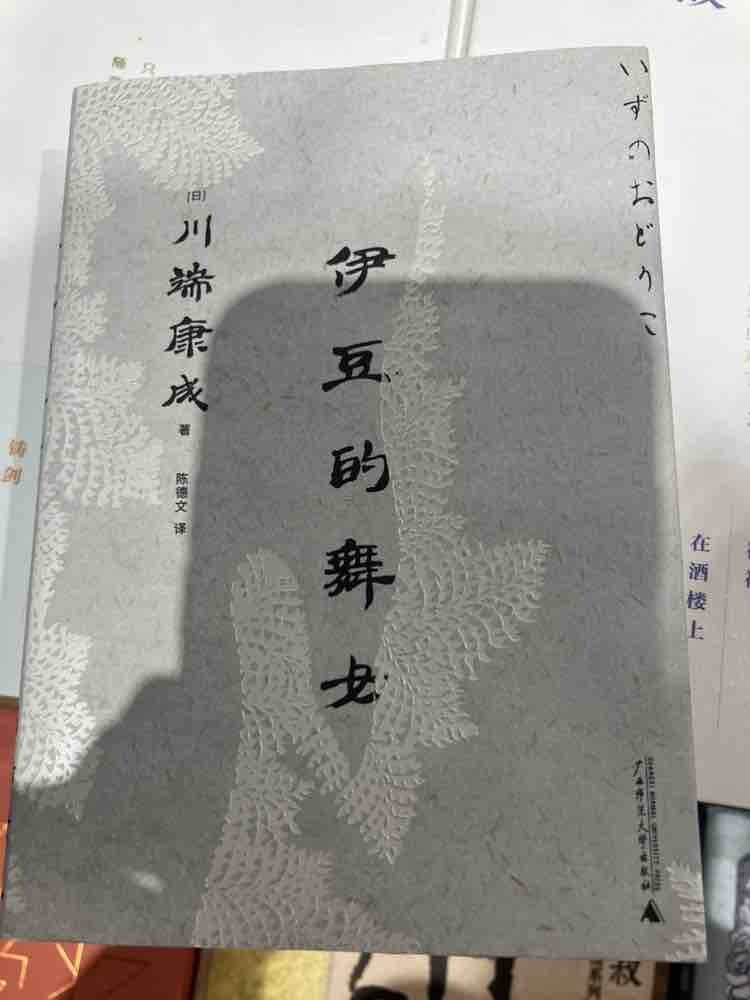 いずのおどりこ
伊豆的舞女
[日]
川端康成
著
陈德文 译
广西师范大学出版社
GUANGXI NORMAL UNIVERSITY PRESS
铸剑
在酒楼上